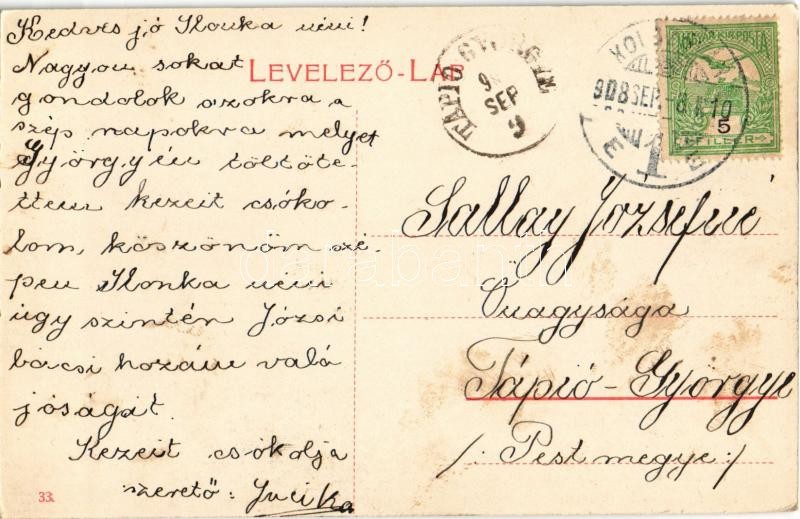 Kedves jó Ilonka néni!
Nagyon sokat
gondolok azokra a
szép napokra melyet
Györgyén töltöt-
tem kezeit csóko-
lom, köszönöm szé-
pen Ilonka néni
úgy szintén Józsi
bácsi hozám való
jóságát.
Kezeit csókolja
szerető: Jucika
33.
LEVELEZŐ-LAP
TÁPIÓGYÖRGYE
SEP
9
KOLOZS
908 SEP
MAGYAR KIR. POSTA
5
FILLÉR
Sallay Józsefné
Őnagysága
Tápió-Györgye
/: Pest megye :/
darabanth